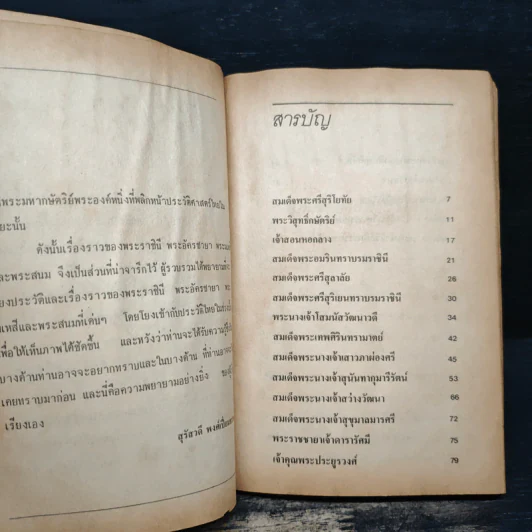 นพระมหากษัตริย์พระองค์หนึ่งที่พลิกหน้าประวัติศาสตร์ไทยใน
ยะนั้น
ดังนั้นเรื่องราวของพระราชินี พระอัครชายา
และพระสนม จึงเป็นส่วนที่น่าจารึกไว้ ผู้รวบรวมได้พยายาม
ยงประวัติและเรื่องราวของพระราชินี พระอัครชายา
เหสีและพระสนมที่เด่นๆ โดยโยงเข้ากับประวัติไทย
เพื่อให้เห็นภาพได้ชัดขึ้น และหวังว่าท่านจะได้รับความรู้
บางด้านท่านอาจจะอยากทราบและในบางด้าน ที่ท่านอาจ
เคยทราบมาก่อน และนี่คือความพยายามอย่างยิ่ง
เรียงเอง
สุรัสวดี
สารบัญ
สมเด็จพระศรีสุริโยทัย 7
พระวิสุทธิกษัตริย์ 11
เจ้าสอนหอกลาง 17
สมเด็จพระอมรินทราบรมราชินี 21
สมเด็จพระศรีสุลาลัย 26
สมเด็จพระศรีสุริเยนทราบรมราชินี 30
พระนางเจ้าโสมนัสวัฒนาวดี 34
สมเด็จพระเทพศิรินทรามาตย์ 42
สมเด็จพระนางเจ้าเสาวภาผ่องศรี 45
สมเด็จพระนางเจ้าสุนันทากุมารีรัตน์ 53
สมเด็จพระนางเจ้าสว่างวัฒนา 66
สมเด็จพระนางเจ้าสุขุมาลมารศรี 72
พระราชชายาเจ้าดารารัศมี 75
เจ้าคุณพระประยูรวงศ์ 79